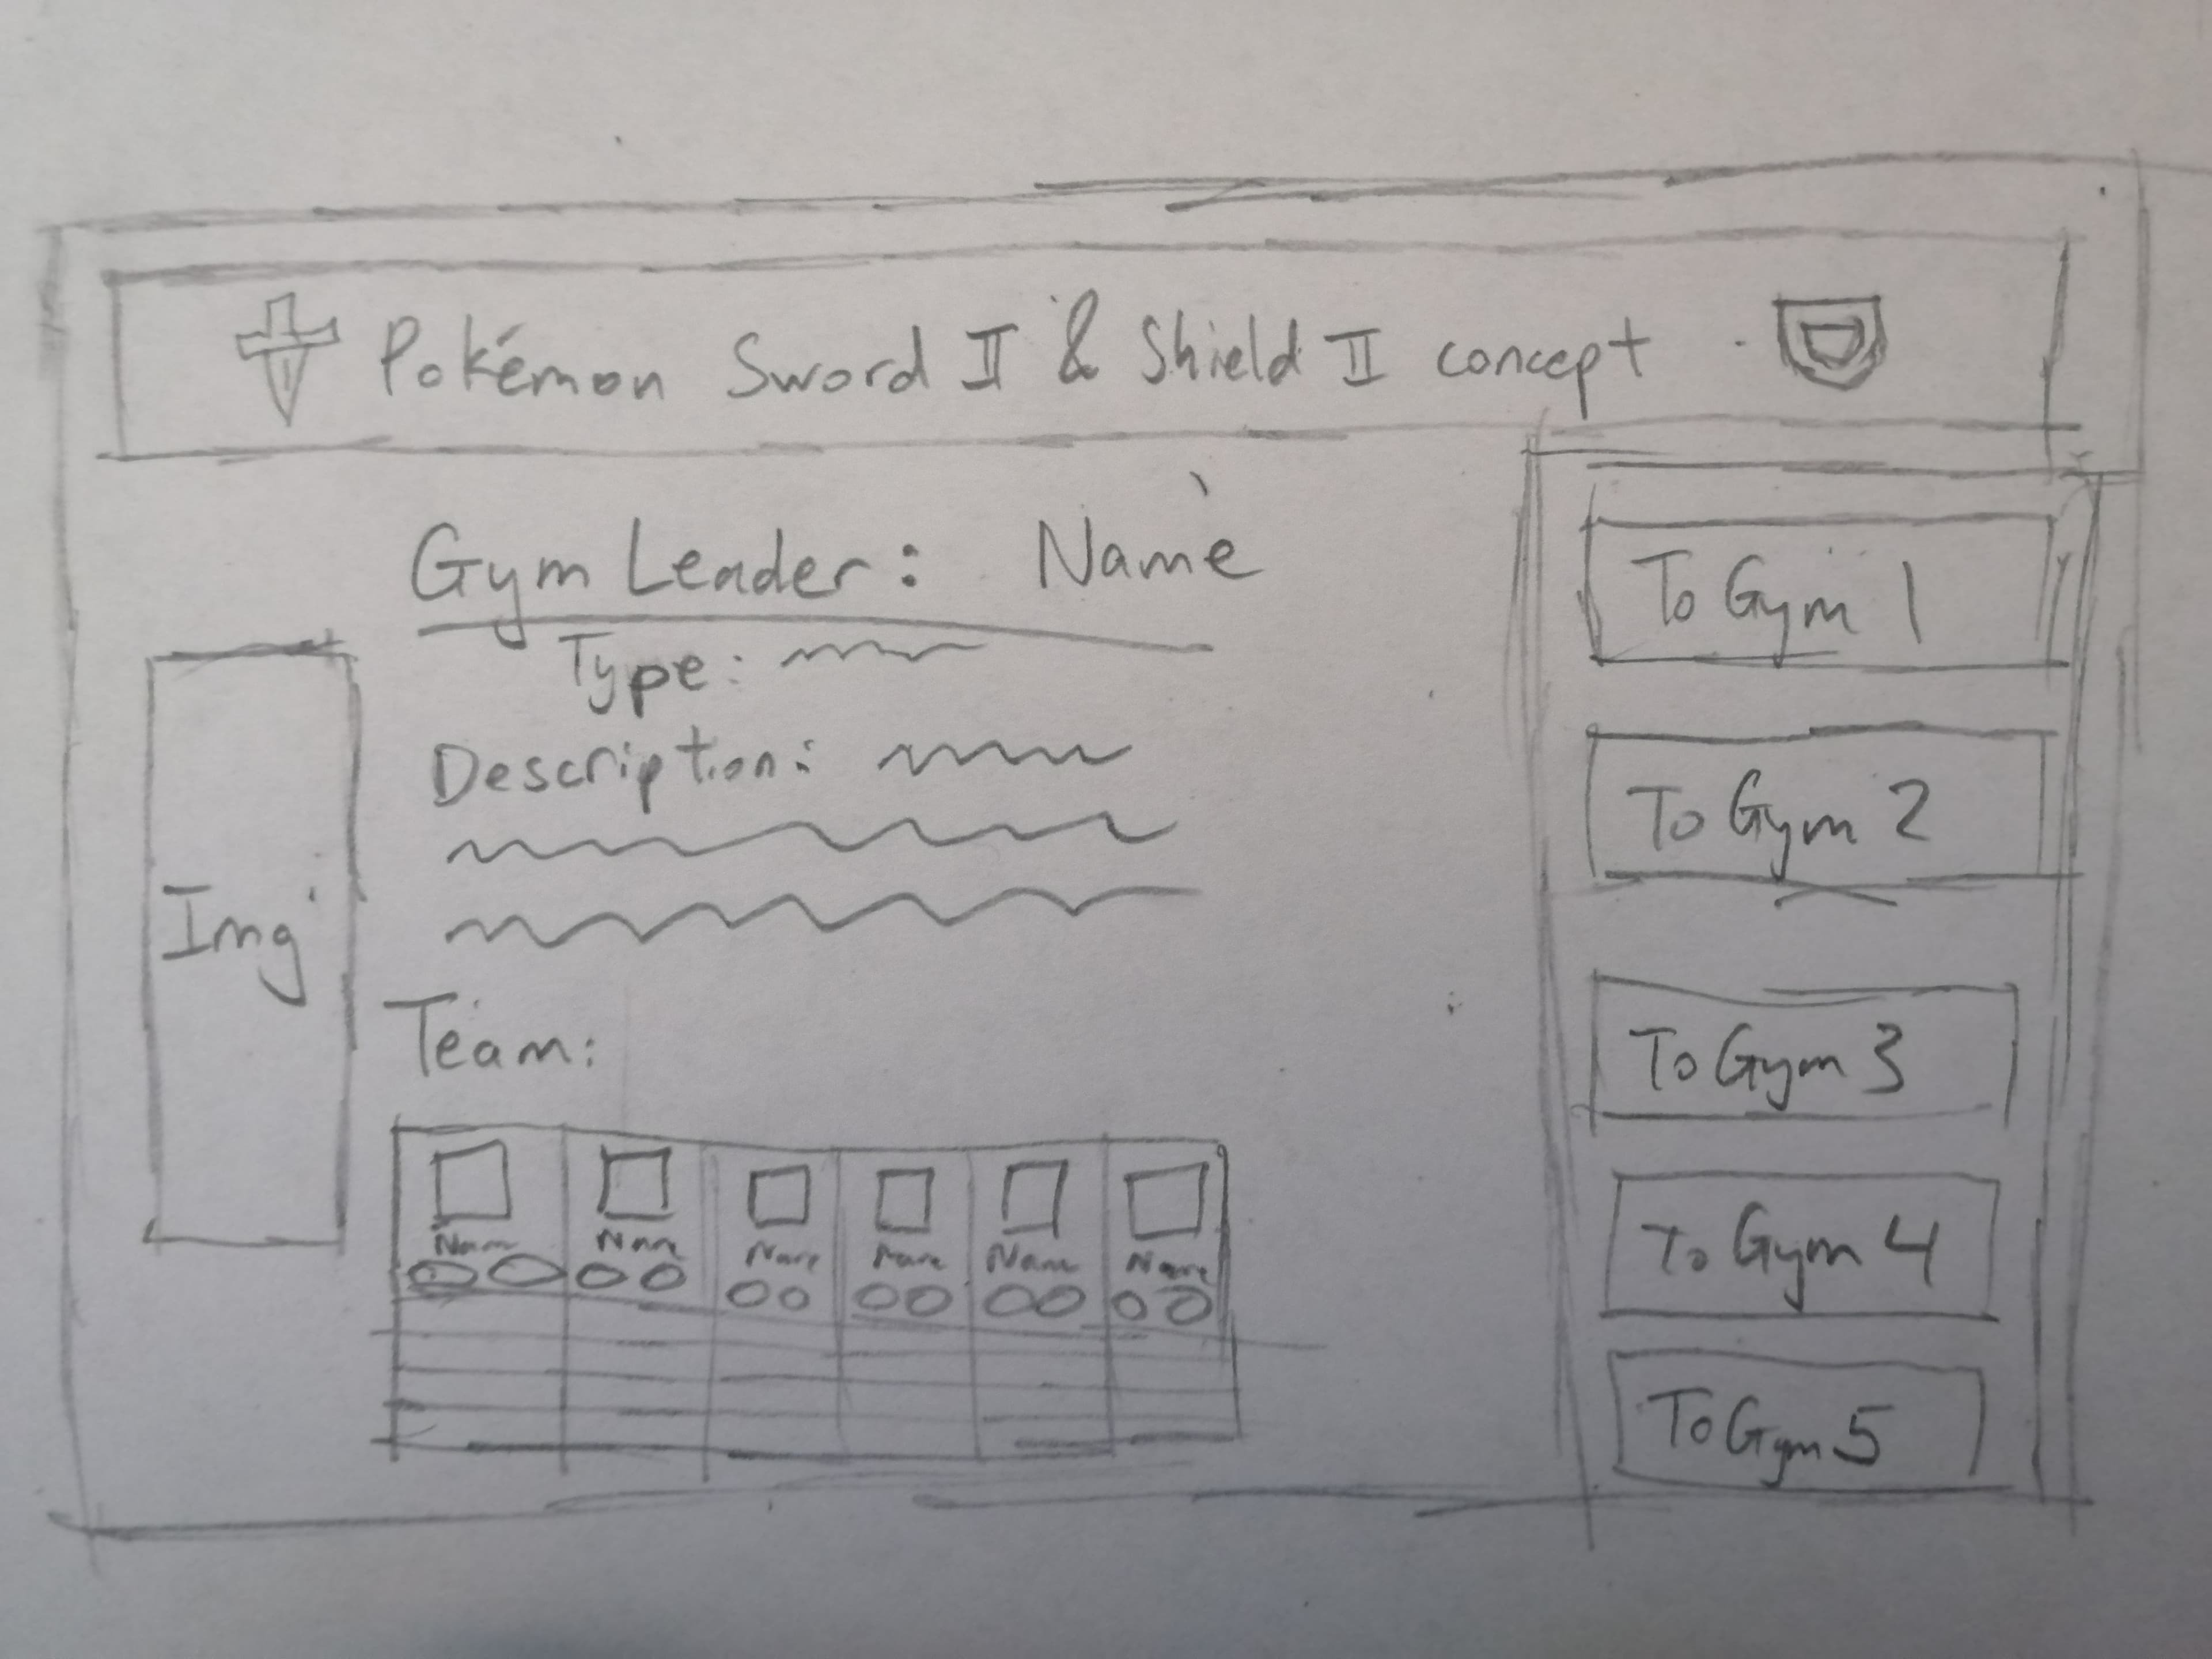 Pokémon Sword II & Shield II concept
Gym Leader: Name
Type:
Description:
Img
Team:
Name Name Name Name Name Name
To Gym 1
To Gym 2
To Gym 3
To Gym 4
To Gym 5